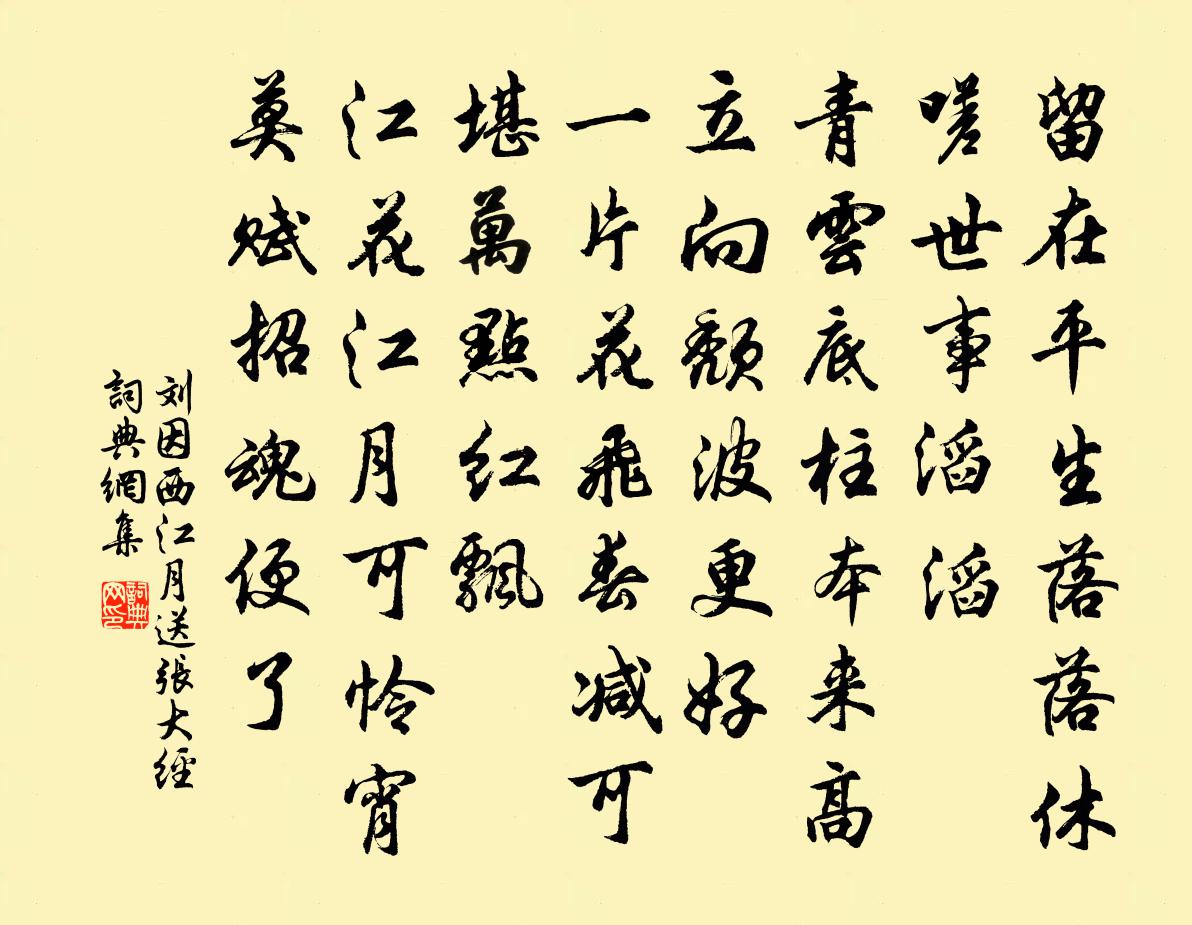 留在平生落落休
嗟世事滔滔
青雲底柱本来高
立向颓波更好
一片花飛春减可
堪萬點红飄
江花江月可怜宵
莫赋招魂便了
刘因西江月送張大經
詞典網集
詞典
网印